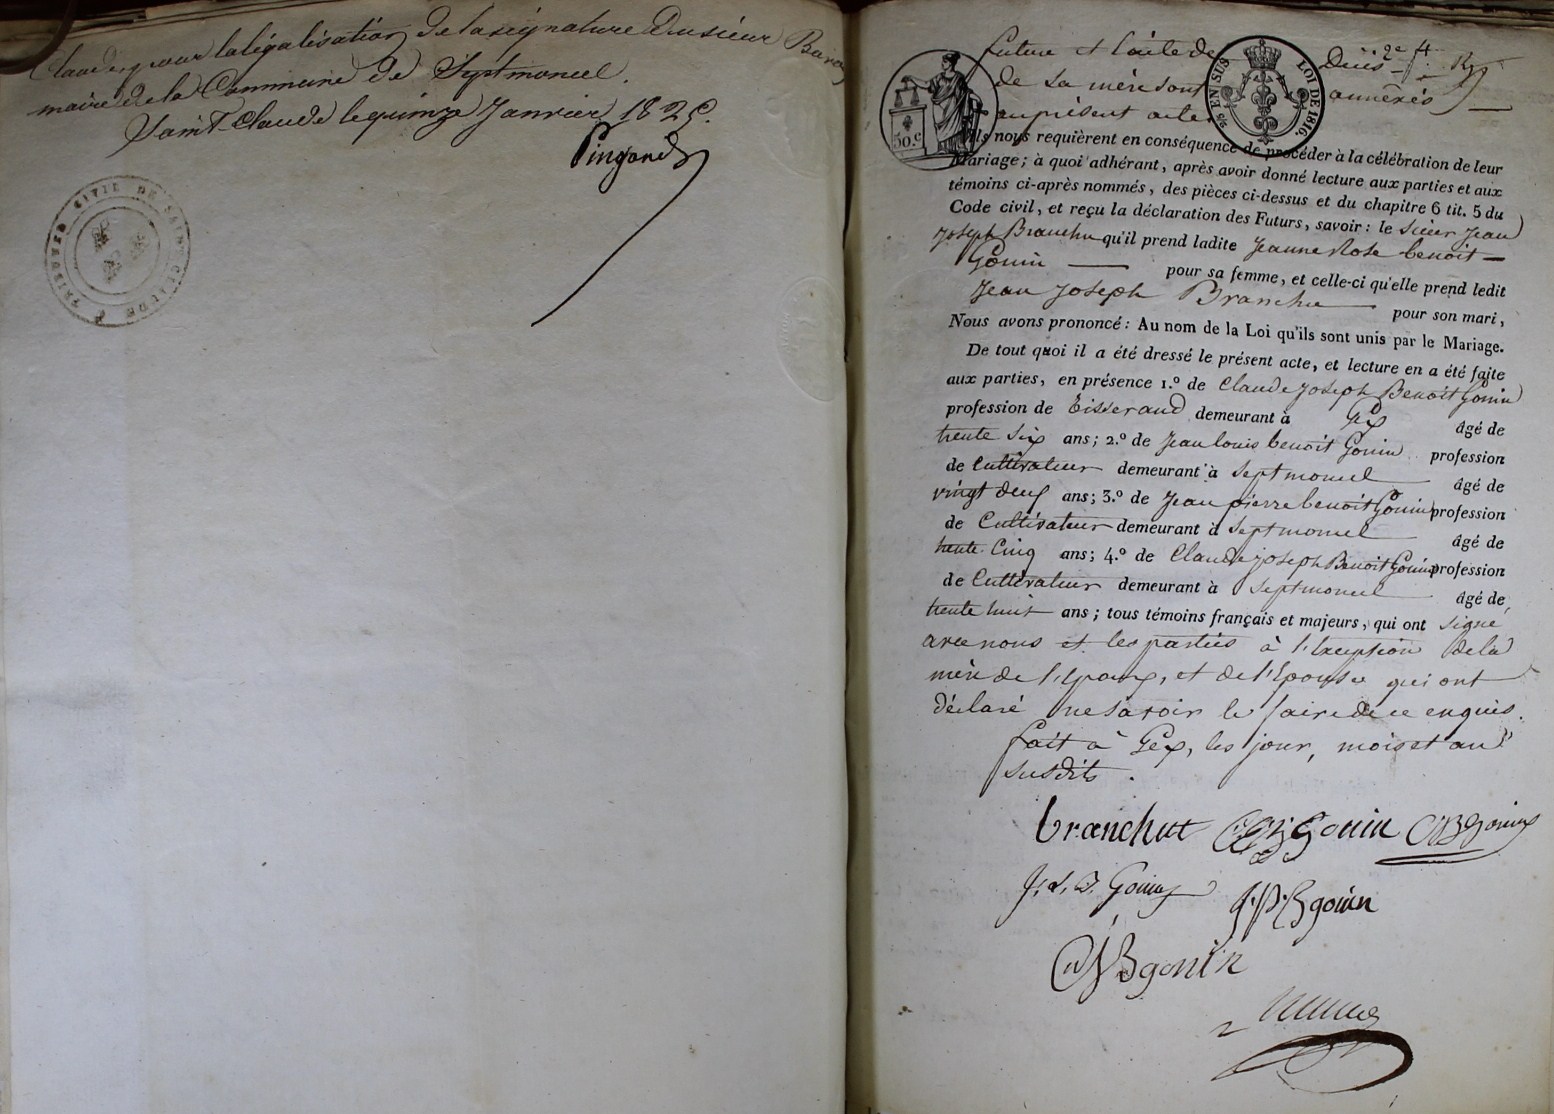 Claude, pour la légalisation de la signature Du sieur
maire de la Commune de Septmoncel.
Saint-Claude le quinze Janvier 1825.
TRIBUNAL CIVIL DE SAINT CLAUDE
future et l'acte de décès
de sa mère sont annexés
au présent acte
50.c
25 EN SUS LOI DE 1816.
Ils nous requièrent en conséquence de procéder à la célébration de leur
Mariage; à quoi adhérant, après avoir donné lecture aux parties et aux
témoins ci-après nommés, des pièces ci-dessus et du chapitre 6 tit. 5 du
Code civil, et reçu la déclaration des Futurs, savoir: le sieur Jean
Joseph Branchu qu'il prend ladite Jeanne Rose benoit-
Gonin pour sa femme, et celle-ci qu'elle prend ledit
Jean Joseph Branchu pour son mari,
Nous avons prononcé: Au nom de la Loi qu'ils sont unis par le Mariage.
De tout quoi il a été dressé le présent acte, et lecture en a été faite
aux parties, en présence 1.º de Claude Joseph Benoit Gonin
profession de Tisserand demeurant à Gex âgé de
trente six ans; 2.º de Jean louis benoit Gonin profession
de Cultivateur demeurant à Septmoncel âgé de
vingt deux ans; 3.º de Jean pierre benoit Gonin profession
de Cultivateur demeurant à Septmoncel âgé de
trente Cinq ans; 4.º de Claude joseph Benoit Gonin profession
de Cultivateur demeurant à Septmoncel âgé de
trente huit ans; tous témoins français et majeurs, qui ont signé
avec nous et les parties à l'Exception de la
mère de l'Epoux, et de l'Epouse qui ont
déclaré ne savoir le faire de ce enquis.
fait à Gex, les jour, mois et an
susdits.
branchut Gonin CJBgonin
J. L. B. Gonin J.P.Bgonin
CJBgonin